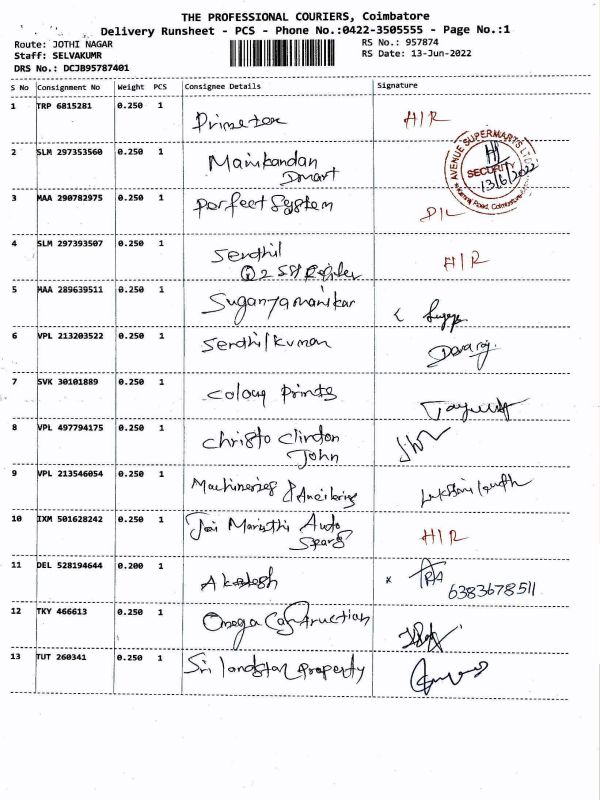 THE PROFESSIONAL COURIERS, Coimbatore
Delivery Runsheet - PCS - Phone No.:0422-3505555 - Page No.:1
Route: JOTHI NAGAR RS No.: 957874
Staff: SELVAKUMR RS Date: 13-Jun-2022
DRS No.: DCJB95787401
S No Consignment No Weight PCS Consignee Details Signature
1 TRP 6815281 0.250 1
H/R
2 SLM 297353560 0.250 1 Manikandan
Dmart
AVENUE SUPERMARTS LTD
SECURITY
13/6/2022
3 MAA 290782975 0.250 1 perfect System
D/L
4 SLM 297393507 0.250 1 Sendhil
H/R
5 MAA 289639511 0.250 1 Suganyamanikar
6 VPL 213203522 0.250 1 Serdhilkuman
Devaraj.
7 SVK 30101889 0.250 1 Colour prints
8 VPL 497794175 0.250 1 Christo Clinton
John
9 VPL 213546054 0.250 1 Machineries &
10 IXM 501628242 0.250 1 Jai Maruthi Auto
Spares
H/R
11 DEL 528194644 0.200 1 Akash
6383678511
12 TKY 466613 0.250 1 Omega Construction
13 TUT 260341 0.250 1 Sri landstar Property